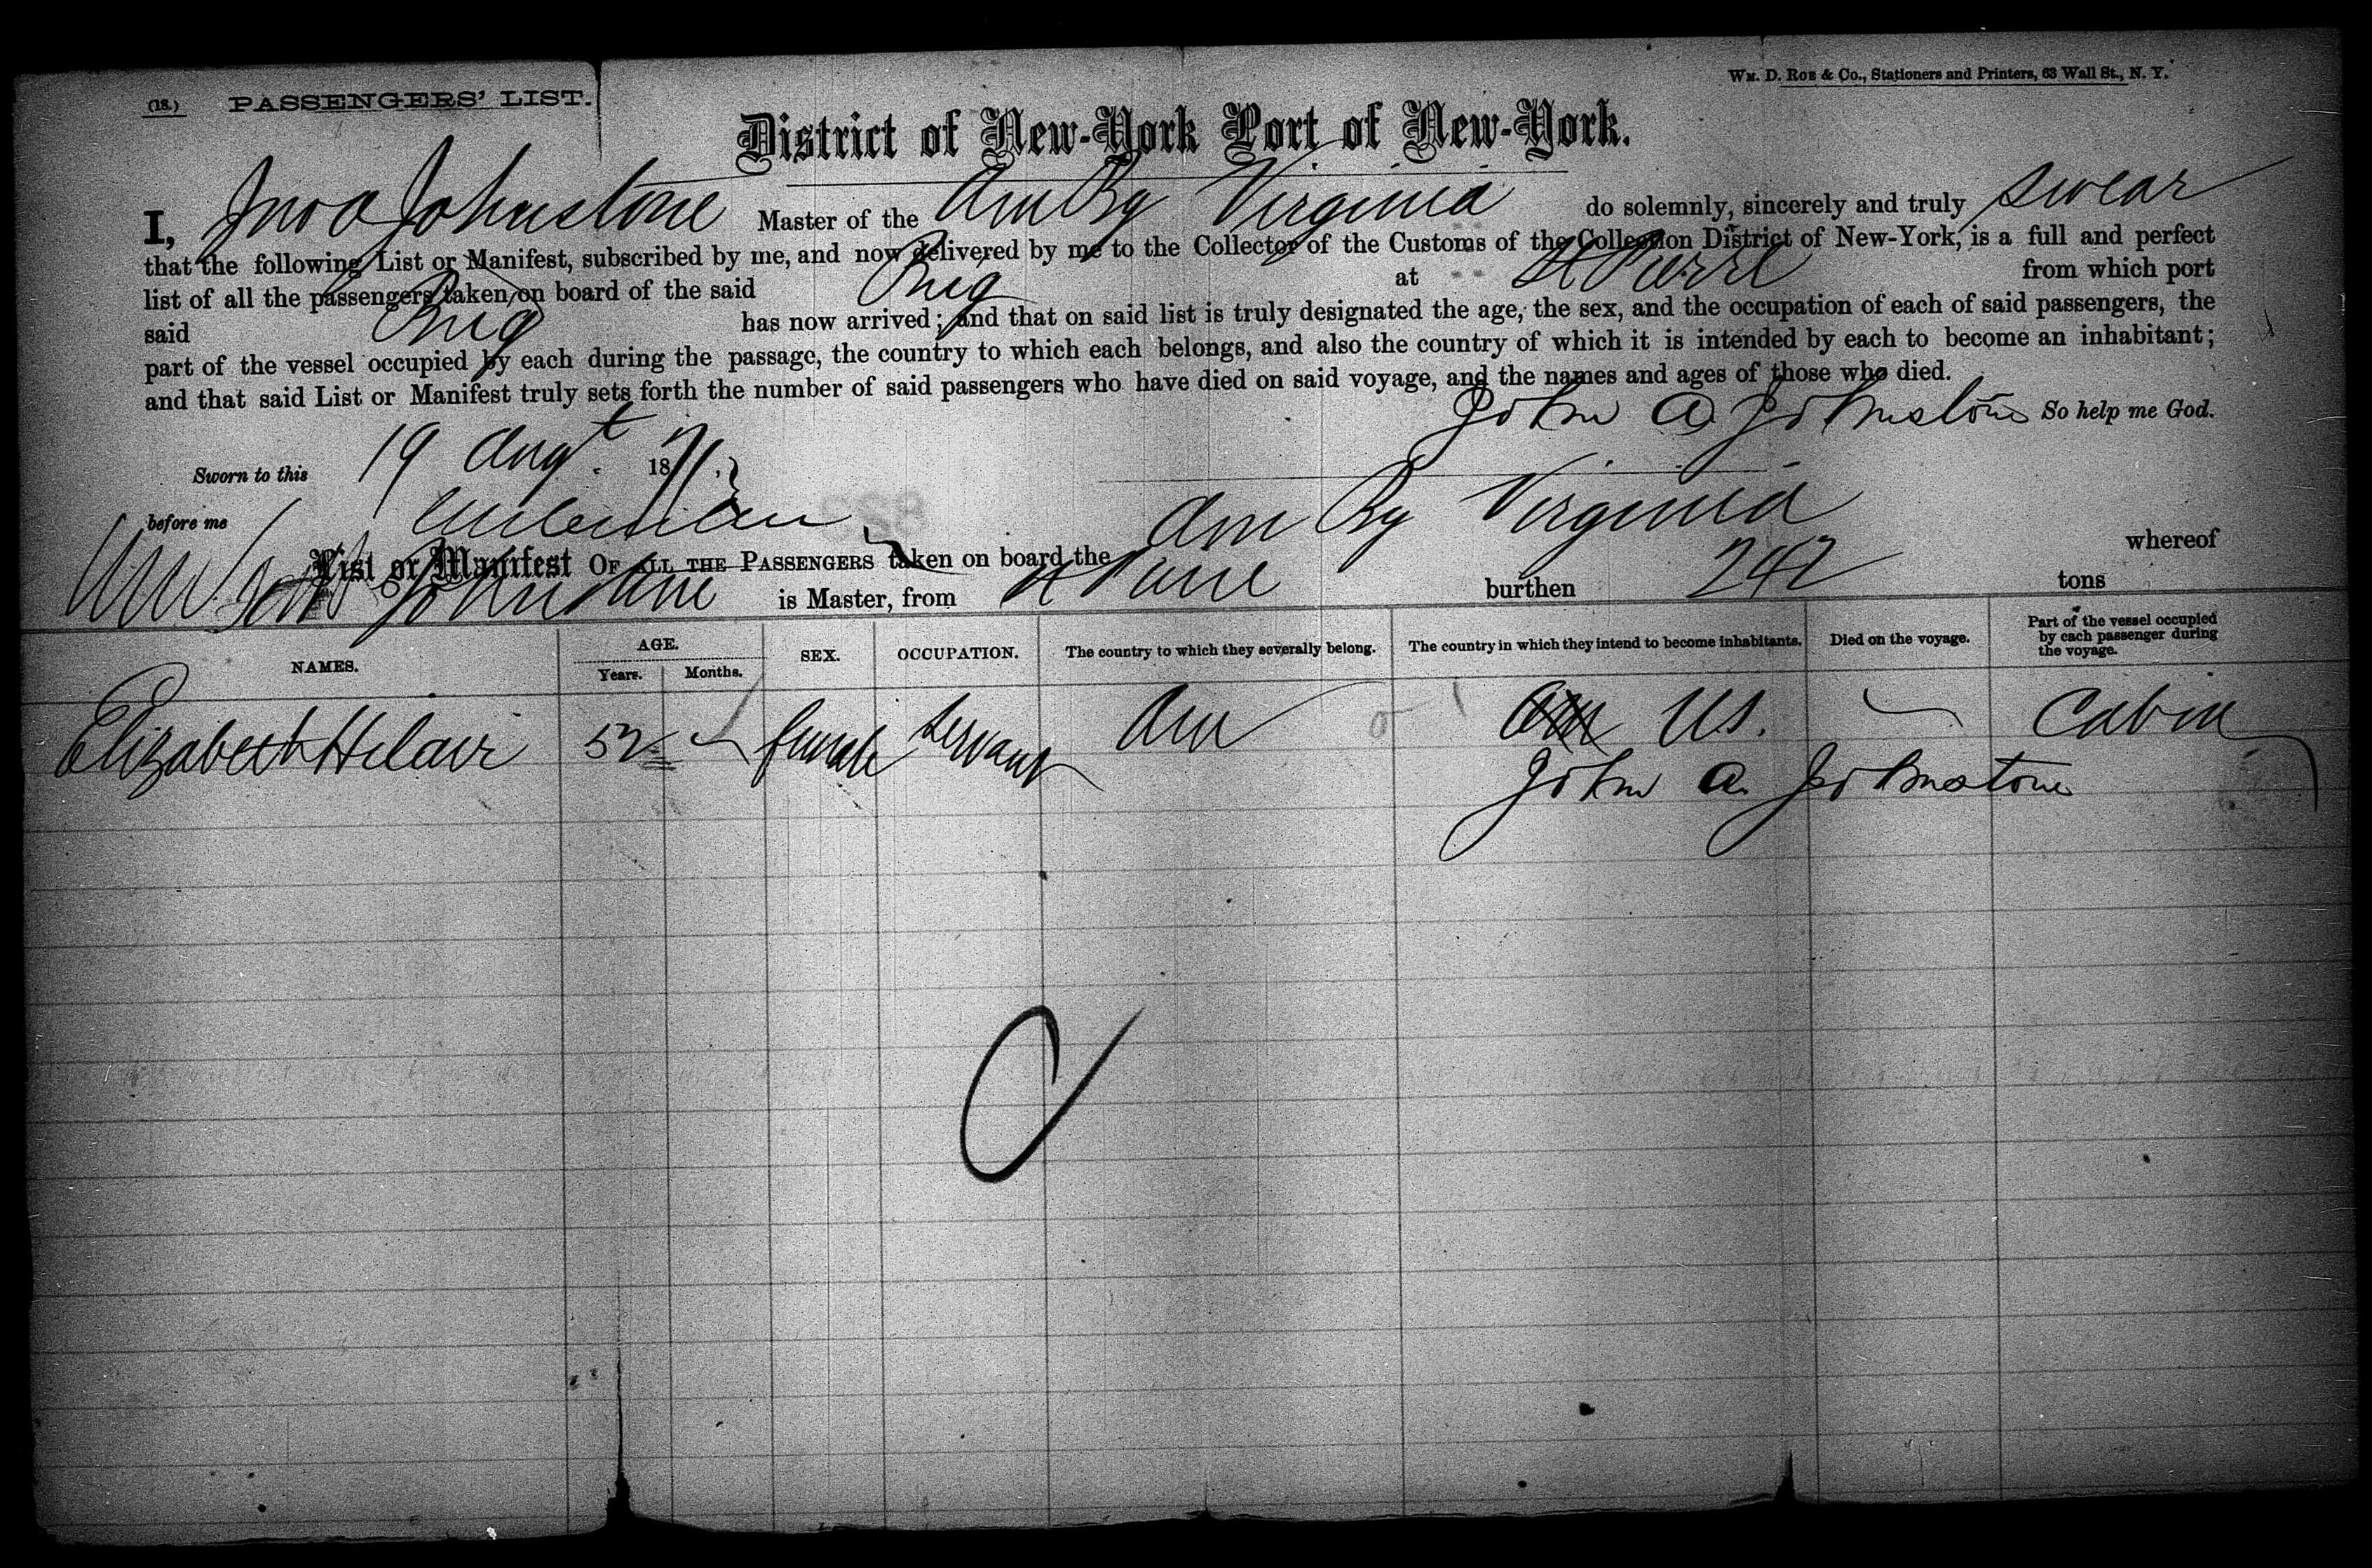 (18.) PASSENGERS' LIST.
WM. D. ROE & CO., Stationers and Printers, 63 Wall St., N. Y.
District of New-York Port of New-York.
I, Jno A Johnstone Master of the Am Bg Virginia do solemnly, sincerely and truly swear
that the following List or Manifest, subscribed by me, and now delivered by me to the Collector of the Customs of the Collection District of New-York, is a full and perfect
list of all the passengers taken on board of the said Brig at St Pierre from which port
said Brig has now arrived; and that on said list is truly designated the age, the sex, and the occupation of each of said passengers, the
part of the vessel occupied by each during the passage, the country to which each belongs, and also the country of which it is intended by each to become an inhabitant;
and that said List or Manifest truly sets forth the number of said passengers who have died on said voyage, and the names and ages of those who died.
John A. Johnstone So help me God.
Sworn to this 19 Augt 1871.
before me
List or Manifest OF ALL THE PASSENGERS taken on board the Am Bg Virginia whereof
Johnstone is Master, from St Pierre burthen 242 tons
NAMES. AGE. Years. Months. SEX. OCCUPATION. The country to which they severally belong. The country in which they intend to become inhabitants. Died on the voyage. Part of the vessel occupied by each passenger during the voyage.
Elizabeth Helair 52 female Servant Am Am US. Cabin
John A. Johnstone